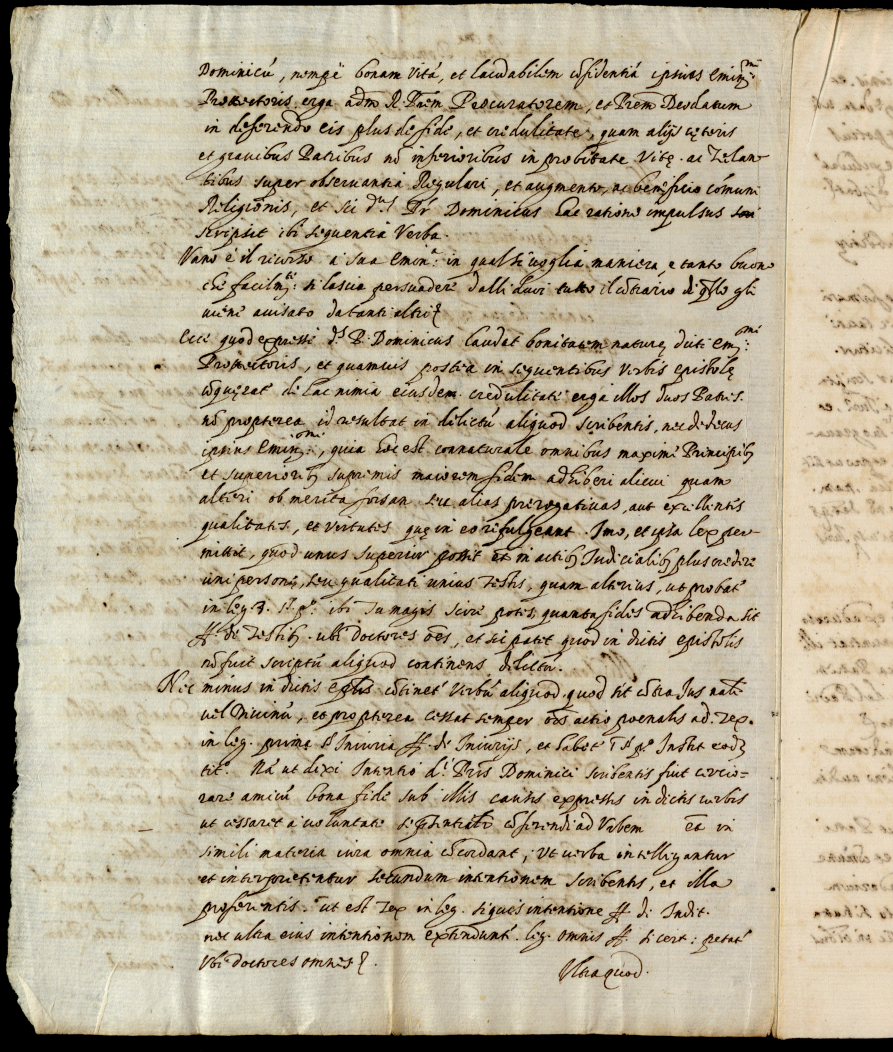 Dominicũ, nempè bonam vitã, et laudabilem cõfidentiã ipsius Emin:mi
Protectoris erga adm R. Prem Procuratorem, et Prem Deodatum
in deferendo eis plus de fide, et credulitate, quam alijs cęteris
et gravibus Patribus nõ inferioribus in probitate vitę ac Zelan-
tibus super observantia Regulari, et augmento, ac beneficio cõmuni
Religionis, et sci ds Pr Dominicus hac ratione impulsus
scripsit ibi sequentia verba.
Vano è il ricorso a sua Emin: in qual si voglia maniera, e tanto buono
che facilmte: si lascia persuadere dalli duoi tutto il cõtrario di qllo gli
viene avisato da tanti altri
Ecce quod expresse ds P. Dominicus laudat bonitatem naturę dicti Em:mi
Protectoris, et quamvis postea in sequentibus verbis epistolę
cõquerat de hac nimia eiusdem credulitate erga illos duos Patres.
nõ propterea id resultat in delictũ aliquod scribentis, nec dedecus
ipsius Emin:mi, quia hoc est connaturale omnibus maximè Principib9
et superiorib9 supremis maiorem fidem adhiberi alicui quam
alteri ob merita forsan seu alias prerogativas, aut excellentis
qualitatis, et virtutes quę in eo refulgeant. Imo, et ipsa lex per-
mittit, quod unus superior possit et in actib9 Iudicialib9 plus credere
uni personę, seu qualitati unius Testis, quam alterius, ut probat
in leg 3. ibi Tu magis scire potes, quanta fides adhibenda sit
ff de Testib. ubi doctores oẽs, et sic patet quod in dictis epistolis
nõ fuit scriptũ aliquod continens delictũ.
Nec minus in dictis eplis cõtinet verbũ aliquod quod sit cõtra Ius nale
vel Divinũ, et propterea cessat semper oĩs actio poenalis ad Tex.
in leg. prima ff. de Iniurijs, et habet Instit eod
tit. Nã ut dixi Intentio di Pris Dominici scribentis fuit certio=
rare amicũ bona fide sub illis causis expressis in dictis verbis
ut cessaret a voluntate cõferendi ad Urbem et in
simili materia iura omnia cõcordant, ut verba intelligantur
et interpretentur secundum intentionem scribentis, et illa
proferentis. ut est Tex in leg. siquis intentione ff de Iudit.
nec ultra eius intentionem extendunt. leg. omnis ff. si cert: petat
Ubi doctores omnes.
Ultra quod.